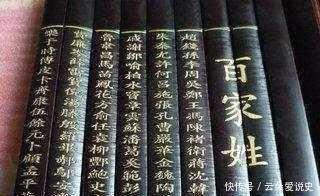 百家姓
趙錢孫李周吳鄭王馮陳褚衛蔣沈韓
朱秦尤許何呂施張孔曹嚴華金魏陶
戚謝鄒喻柏水竇章雲蘇潘葛奚范彭
魯韋昌馬苗鳳花方俞任袁柳酆鮑史
費廉岑薛雷賀倪湯滕殷羅畢郝鄔安
樂于時傅皮卞齊康伍余元卜顧孟平
快传号/云
爱说史